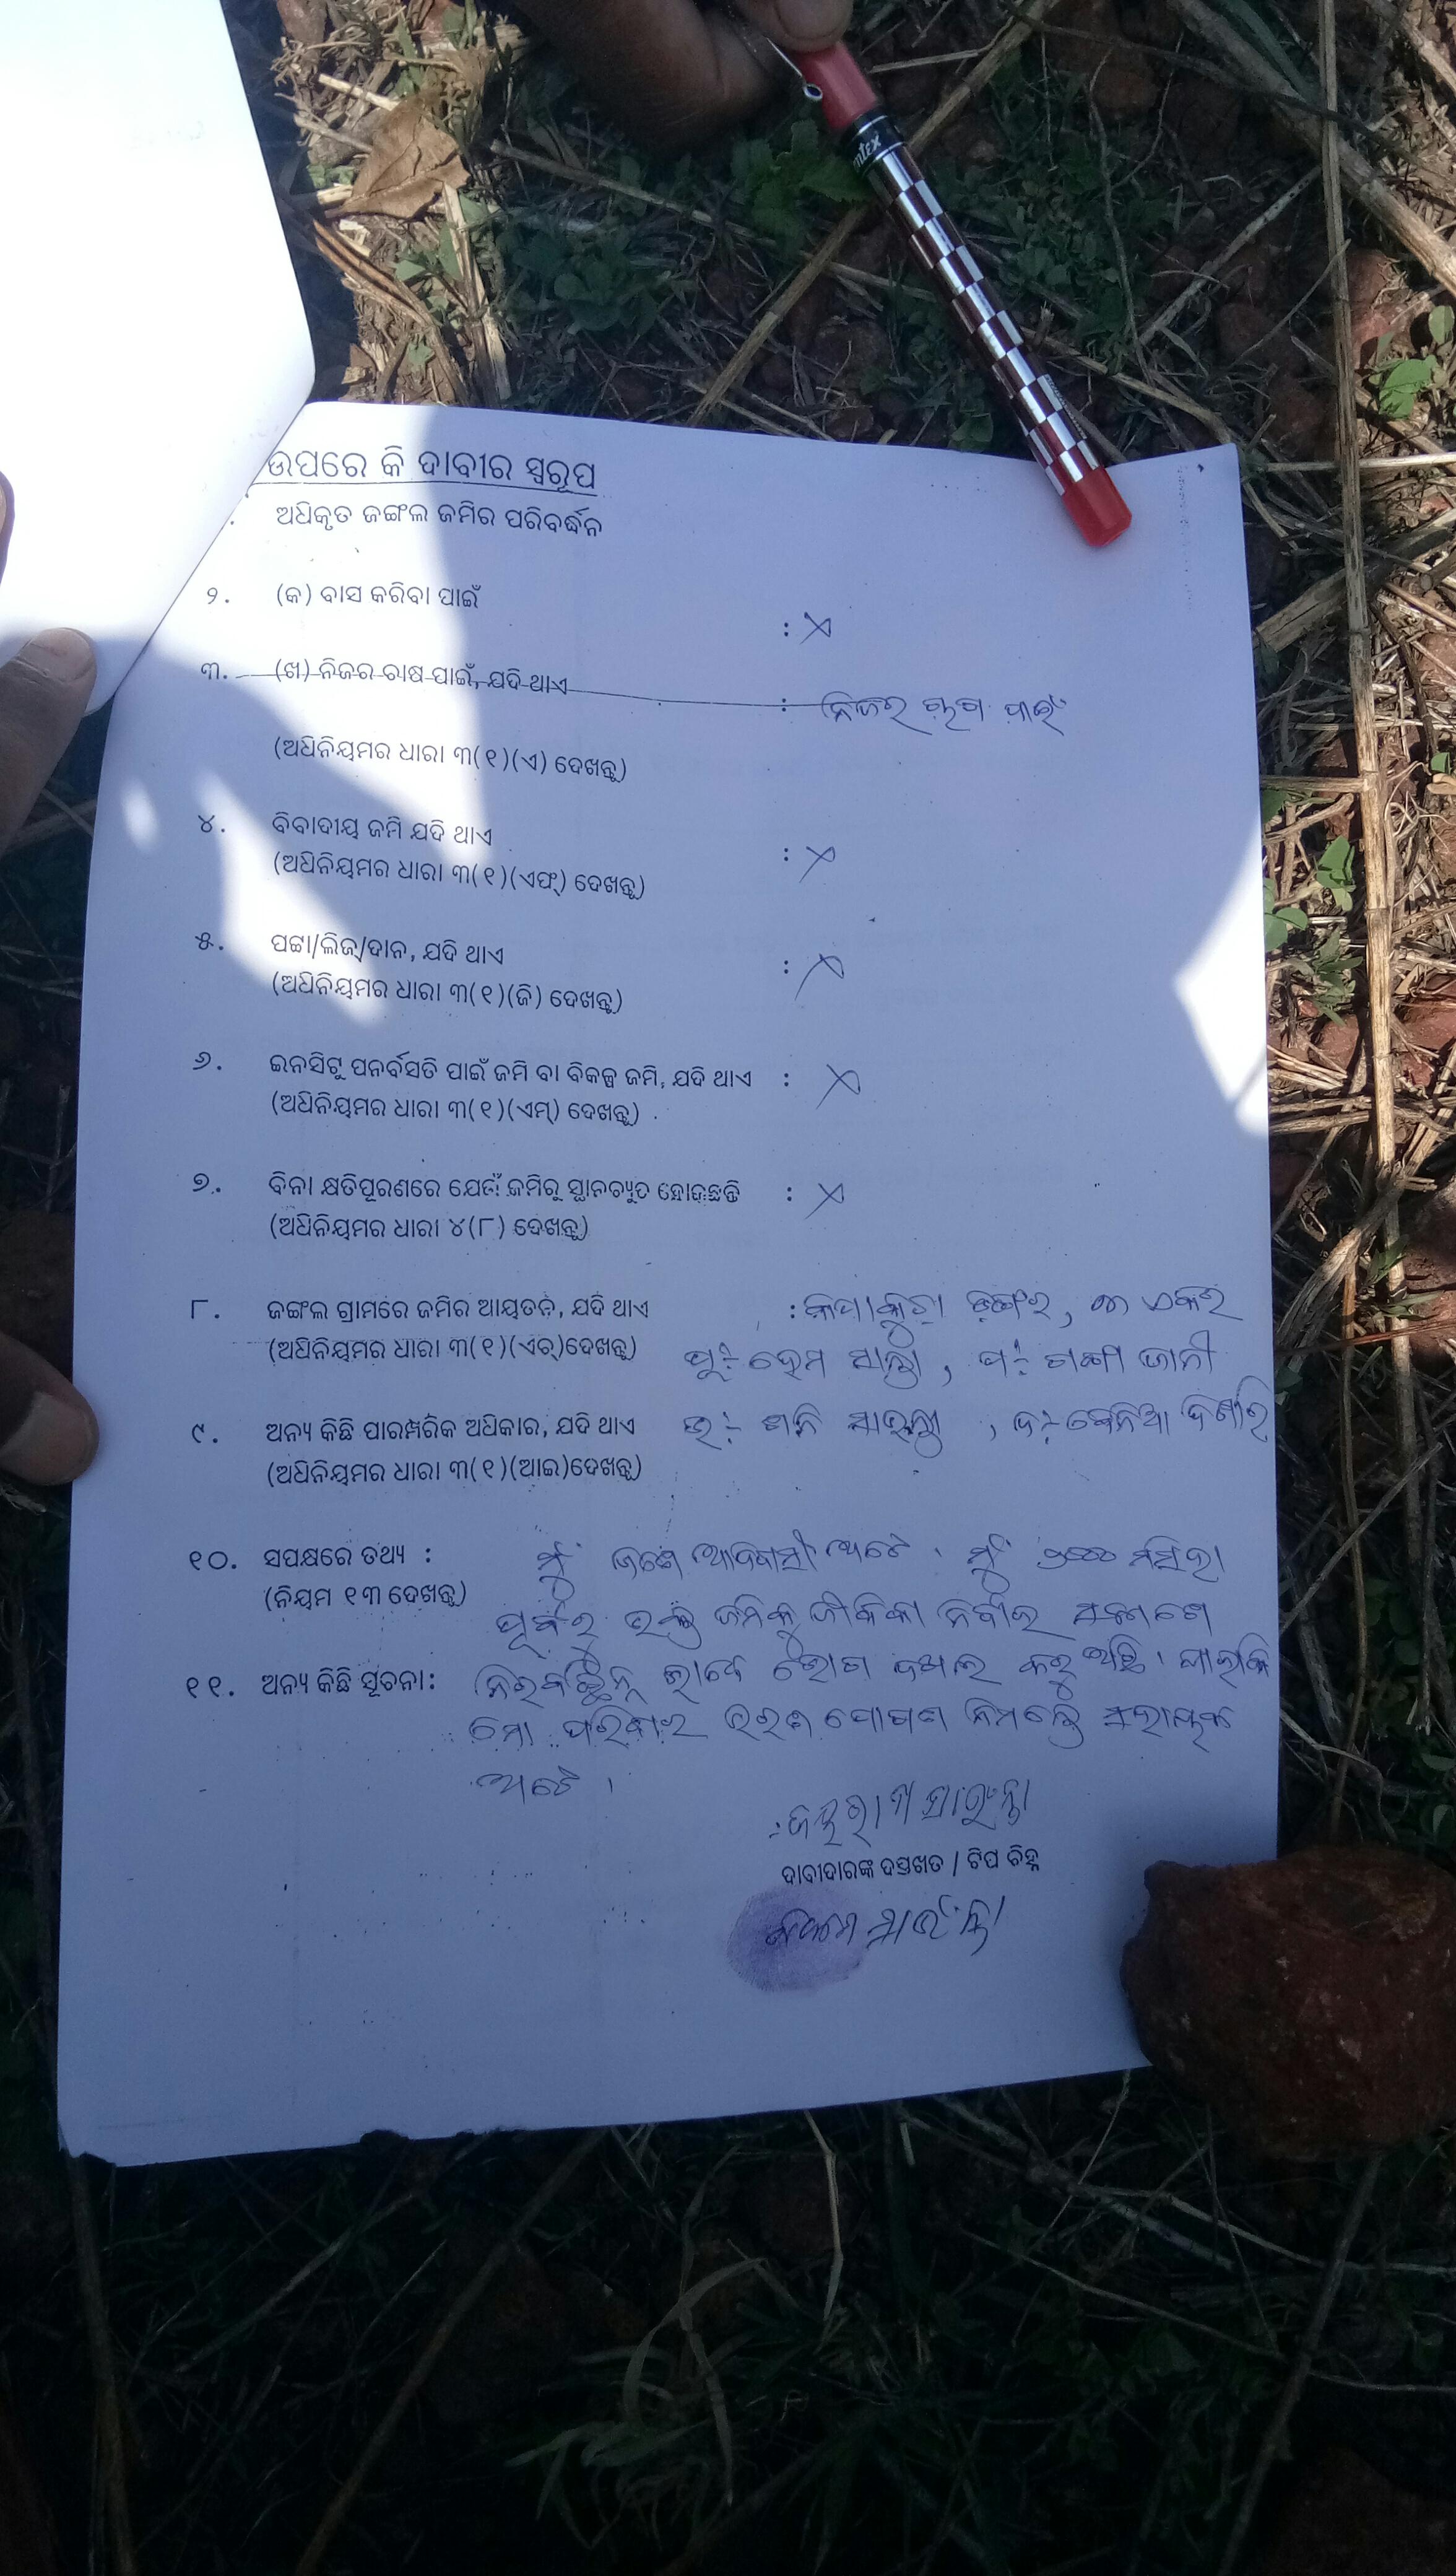 ଉପରେ କି ଦାବୀର ସ୍ୱରୂପ
. ଅଧିକୃତ ଜଙ୍ଗଲ ଜମିର ପରିବର୍ଦ୍ଧନ
୨. (କ) ବାସ କରିବା ପାଇଁ : ×
୩. (ଖ) ନିଜର ଚାଷ ପାଇଁ, ଯଦି ଥାଏ : ନିଜର ଚାଷ ପାଇଁ
(ଅଧିନିୟମର ଧାରା ୩(୧)(ଏ) ଦେଖନ୍ତୁ)
୪. ବିବାଦୀୟ ଜମି ଯଦି ଥାଏ : ×
(ଅଧିନିୟମର ଧାରା ୩(୧)(ଏଫ୍) ଦେଖନ୍ତୁ)
୫. ପଟ୍ଟା/ଲିଜ୍/ଦାନ, ଯଦି ଥାଏ : ×
(ଅଧିନିୟମର ଧାରା ୩(୧)(ଜି) ଦେଖନ୍ତୁ)
୬. ଇନସିଟୁ ପନର୍ବସତି ପାଇଁ ଜମି ବା ବିକଳ୍ପ ଜମି, ଯଦି ଥାଏ : ×
(ଅଧିନିୟମର ଧାରା ୩(୧)(ଏମ୍) ଦେଖନ୍ତୁ)
୭. ବିନା କ୍ଷତିପୂରଣରେ ଯେଉଁ ଜମିରୁ ସ୍ଥାନଚ୍ୟୁତ ହୋଇଛନ୍ତି : ×
(ଅଧିନିୟମର ଧାରା ୪(୮) ଦେଖନ୍ତୁ)
୮. ଜଙ୍ଗଲ ଗ୍ରାମରେ ଜମିର ଆୟତନ, ଯଦି ଥାଏ : ଡଙ୍ଗର, ୩ ଏକର
(ଅଧିନିୟମର ଧାରା ୩(୧)(ଏଚ୍)ଦେଖନ୍ତୁ) ପୂ:- ହେମ ପ:- ଜାନୀ
୯. ଅନ୍ୟ କିଛି ପାରମ୍ପରିକ ଅଧିକାର, ଯଦି ଥାଏ ଉ:- ଶନି ଦ:-
(ଅଧିନିୟମର ଧାରା ୩(୧)(ଆଇ)ଦେଖନ୍ତୁ)
୧୦. ସପକ୍ଷରେ ତଥ୍ୟ : ମୁଁ ଜଣେ ଆଦିବାସୀ ଅଟେ । ମୁଁ ମସିହା
(ନିୟମ ୧୩ ଦେଖନ୍ତୁ) ପୂର୍ବରୁ ଉକ୍ତ ଜମିକୁ ଜୀବିକା ନିର୍ବାହ
୧୧. ଅନ୍ୟ କିଛି ସୂଚନା: ନିରବଚ୍ଛିନ୍ନ ଭାବେ ଭୋଗ ଦଖଲ କରୁଅଛି । ଯାହାକି
ମୋ ପରିବାର ଭରଣ ପୋଷଣ ନିମନ୍ତେ ସହାୟକ
ଅଟେ ।
ଦାବୀଦାରଙ୍କ ଦସ୍ତଖତ / ଟିପ ଚିହ୍ନ